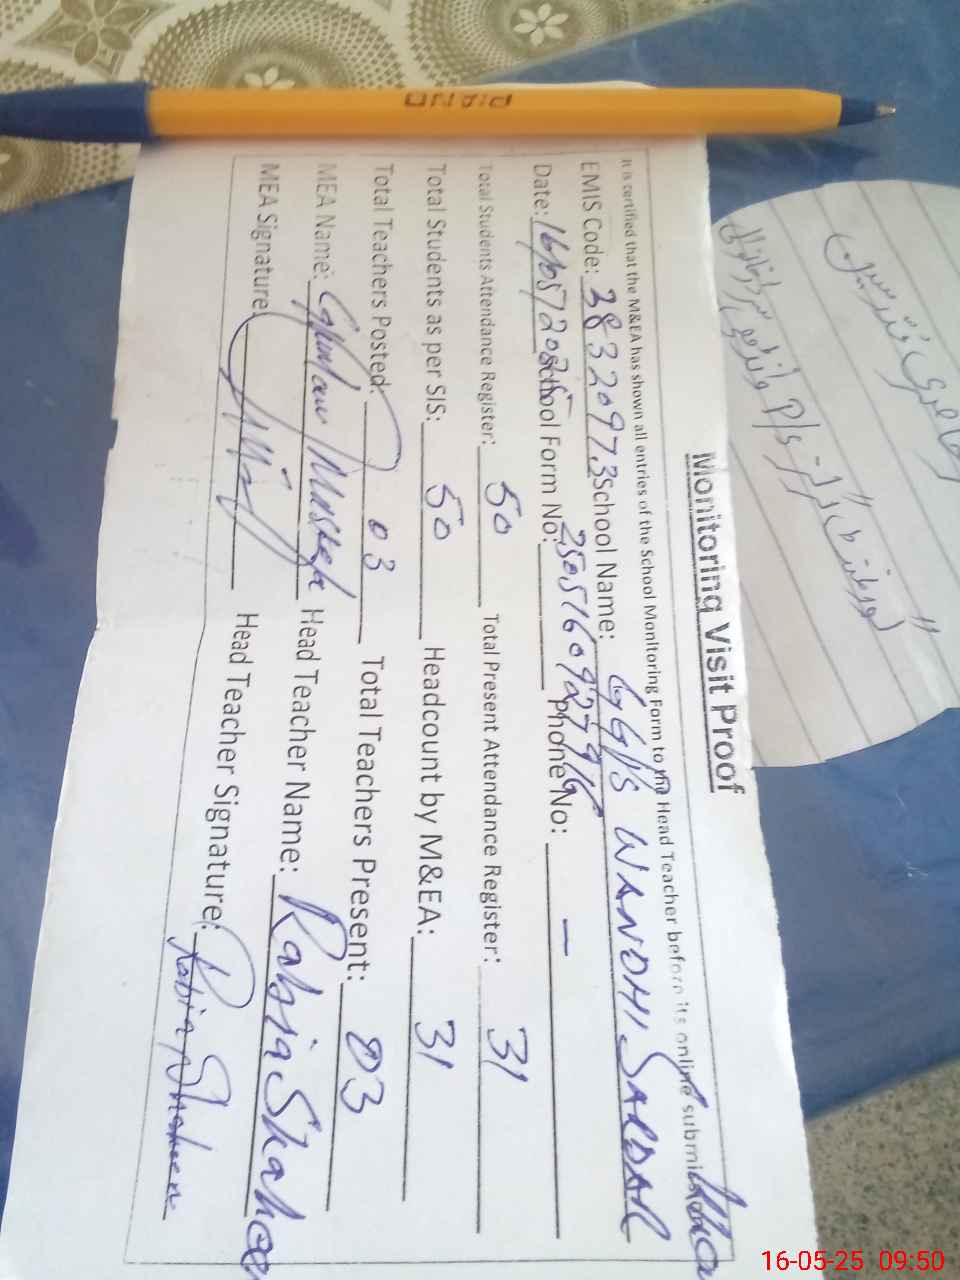 Monitoring Visit Proof
It is certified that the M&EA has shown all entries of the School Monitoring Form to the Head Teacher before its online submission
EMIS Code: 38320973 School Name: GGPS WANDHI SARDAR
Date: 16/05/2025 School Form No: 2505160927916 Phone No: —
Total Students Attendance Register: 50 Total Present Attendance Register: 31
Total Students as per SIS: 50 Headcount by M&EA: 31
Total Teachers Posted: 03 Total Teachers Present: 03
MEA Name: Head Teacher Name: Rabia Shahee
MEA Signature: Head Teacher Signature: Rabia Shaheen
16-05-25 09:50